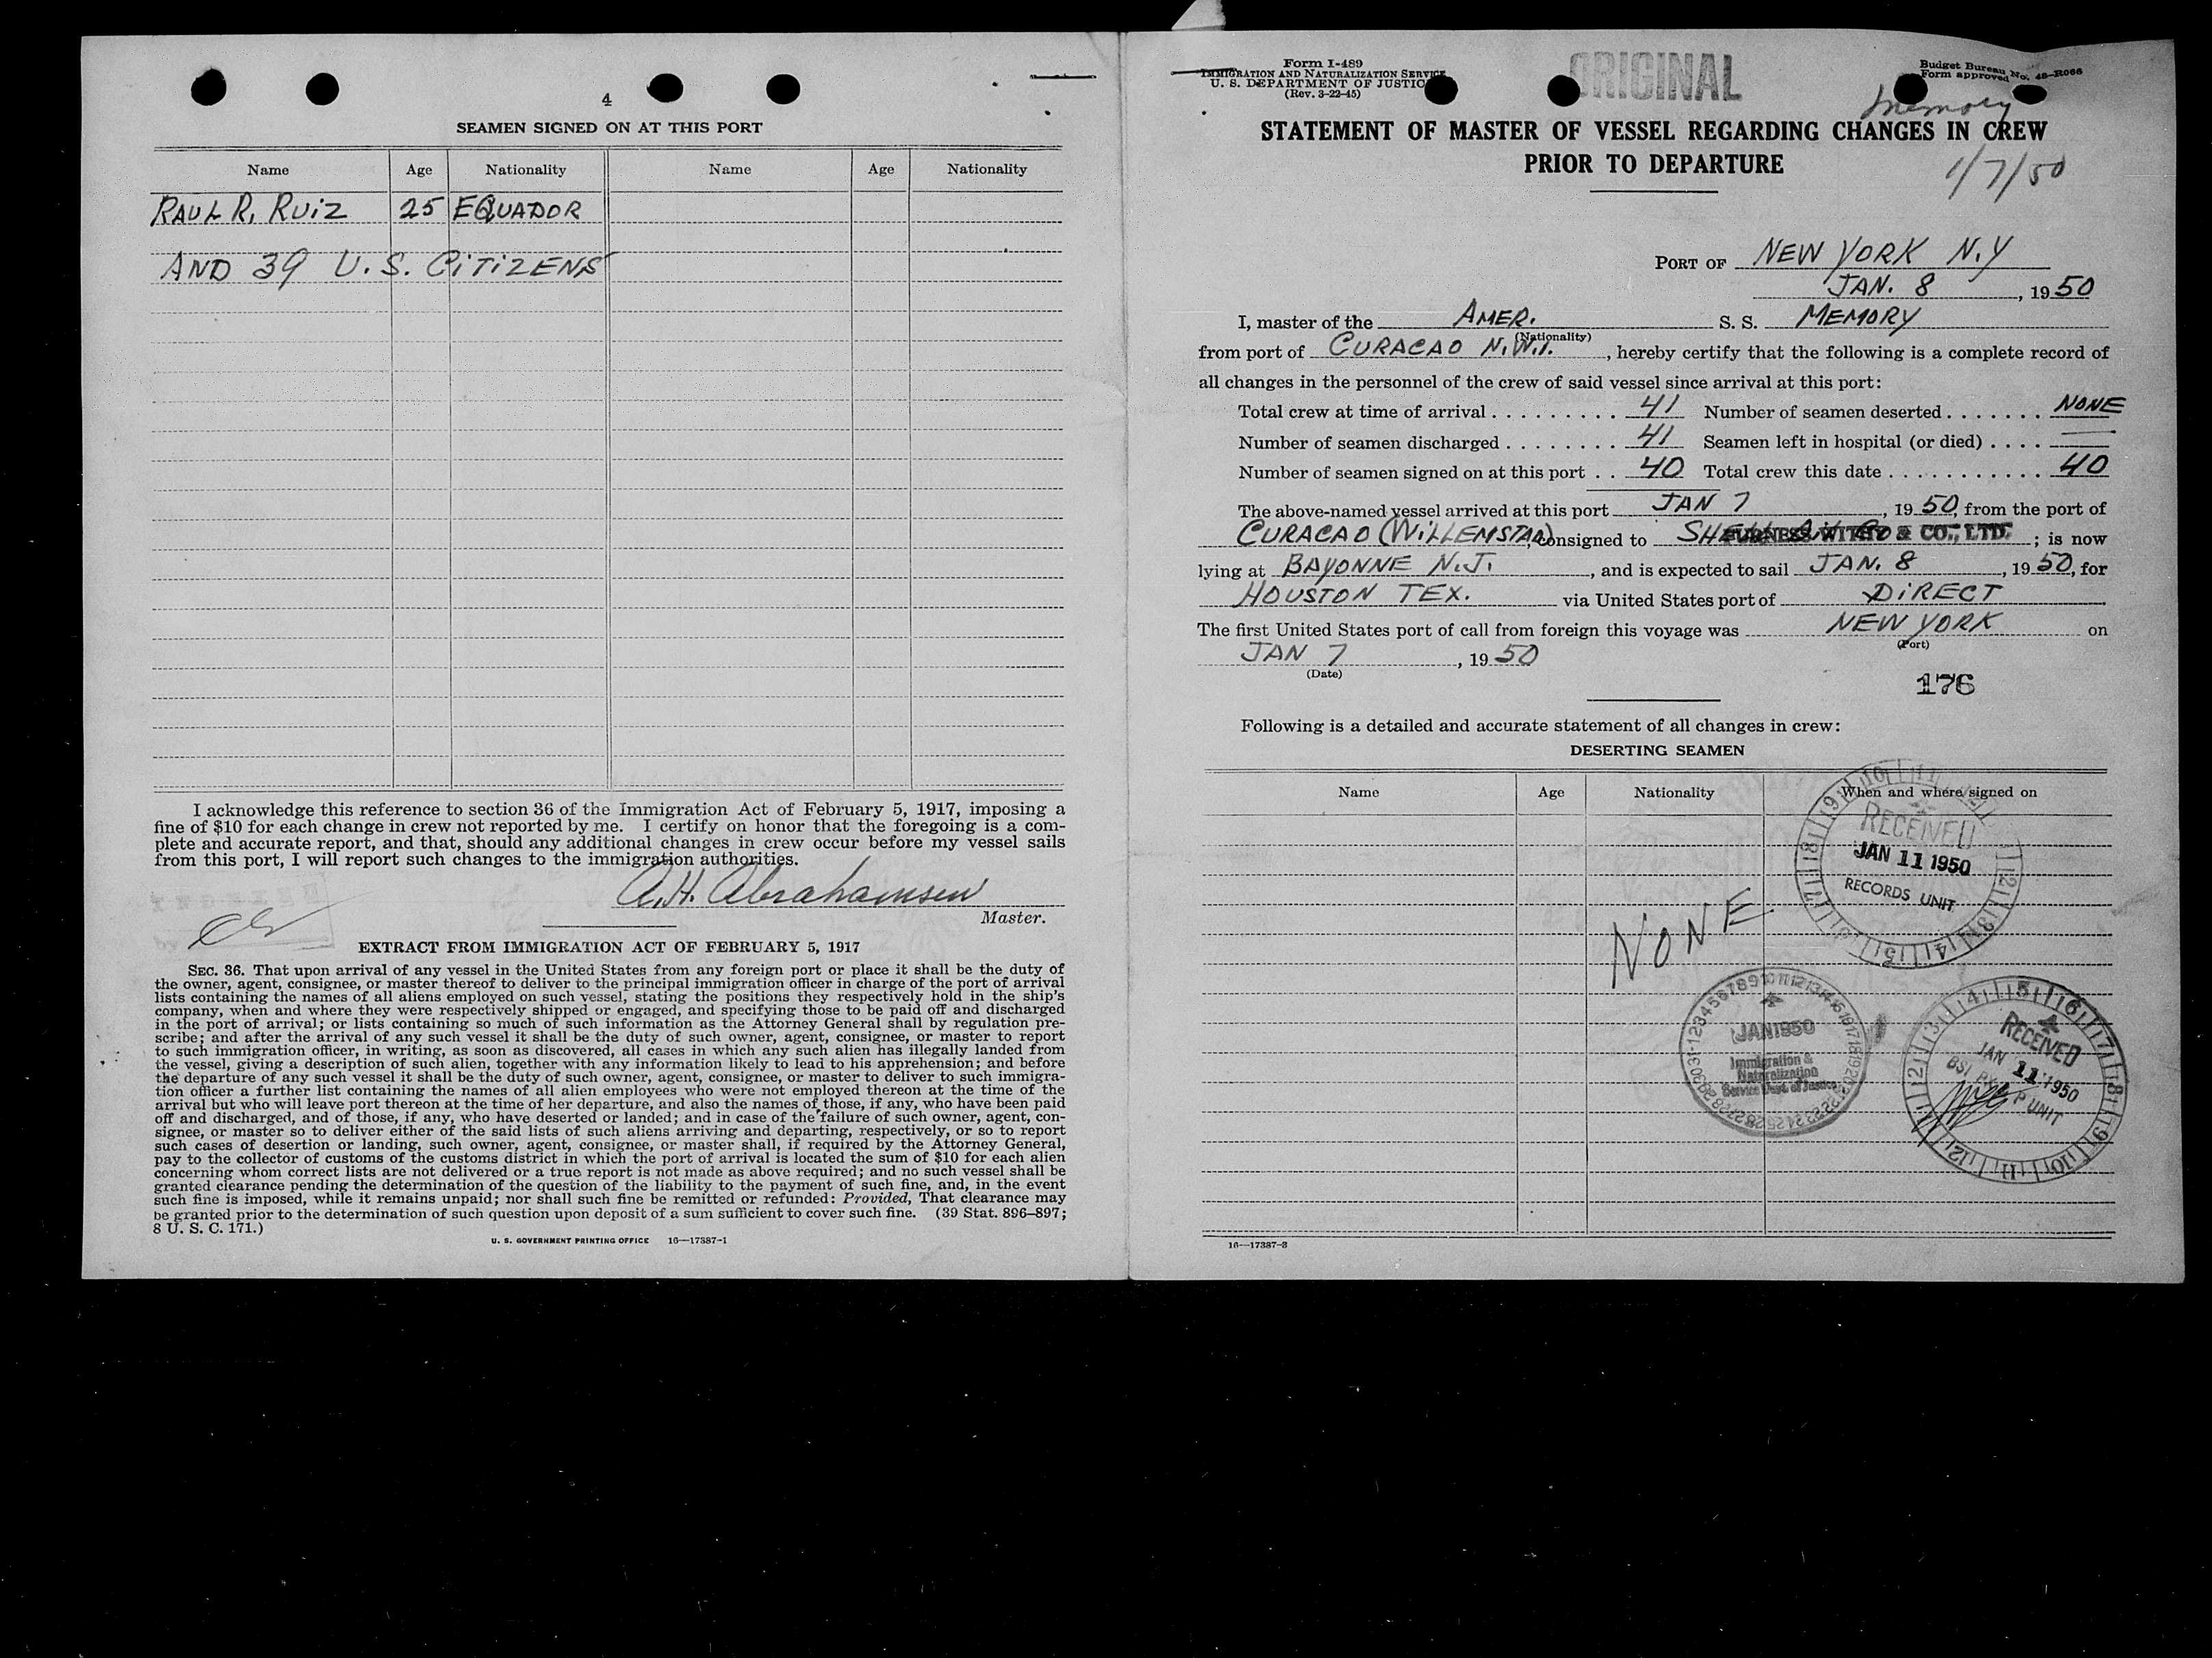 4
SEAMEN SIGNED ON AT THIS PORT
Name Age Nationality Name Age Nationality
RAUL R. RUIZ 25 EQUADOR
AND 39 U.S. CITIZENS
I acknowledge this reference to section 36 of the Immigration Act of February 5, 1917, imposing a
fine of $10 for each change in crew not reported by me. I certify on honor that the foregoing is a com-
plete and accurate report, and that, should any additional changes in crew occur before my vessel sails
from this port, I will report such changes to the immigration authorities.
A. H. Abrahamsen
Master.
EXTRACT FROM IMMIGRATION ACT OF FEBRUARY 5, 1917
SEC. 36. That upon arrival of any vessel in the United States from any foreign port or place it shall be the duty of
the owner, agent, consignee, or master thereof to deliver to the principal immigration officer in charge of the port of arrival
lists containing the names of all aliens employed on such vessel, stating the positions they respectively hold in the ship's
company, when and where they were respectively shipped or engaged, and specifying those to be paid off and discharged
in the port of arrival; or lists containing so much of such information as the Attorney General shall by regulation pre-
scribe; and after the arrival of any such vessel it shall be the duty of such owner, agent, consignee, or master to report
to such immigration officer, in writing, as soon as discovered, all cases in which any such alien has illegally landed from
the vessel, giving a description of such alien, together with any information likely to lead to his apprehension; and before
the departure of any such vessel it shall be the duty of such owner, agent, consignee, or master to deliver to such immigra-
tion officer a further list containing the names of all alien employees who were not employed thereon at the time of the
arrival but who will leave port thereon at the time of her departure, and also the names of those, if any, who have been paid
off and discharged, and of those, if any, who have deserted or landed; and in case of the failure of such owner, agent, con-
signee, or master so to deliver either of the said lists of such aliens arriving and departing, respectively, or so to report
such cases of desertion or landing, such owner, agent, consignee, or master shall, if required by the Attorney General,
pay to the collector of customs of the customs district in which the port of arrival is located the sum of $10 for each alien
concerning whom correct lists are not delivered or a true report is not made as above required; and no such vessel shall be
granted clearance pending the determination of the question of the liability to the payment of such fine, and, in the event
such fine is imposed, while it remains unpaid; nor shall such fine be remitted or refunded: Provided, That clearance may
be granted prior to the determination of such question upon deposit of a sum sufficient to cover such fine. (39 Stat. 896–897;
8 U. S. C. 171.)
U. S. GOVERNMENT PRINTING OFFICE 16—17387-1
Form I-489
IMMIGRATION AND NATURALIZATION SERVICE
U. S. DEPARTMENT OF JUSTICE
(Rev. 3-22-45)
ORIGINAL
Budget Bureau No. 43-R066
Form approved
Memory
STATEMENT OF MASTER OF VESSEL REGARDING CHANGES IN CREW
PRIOR TO DEPARTURE
1/7/50
PORT OF NEW YORK N.Y
JAN. 8, 1950
I, master of the AMER. S. S. MEMORY
(Nationality)
from port of CURACAO N.W.I., hereby certify that the following is a complete record of
all changes in the personnel of the crew of said vessel since arrival at this port:
Total crew at time of arrival . . . . . . . . . 41 Number of seamen deserted . . . . . . . NONE
Number of seamen discharged . . . . . . . . 41 Seamen left in hospital (or died) . . . . —
Number of seamen signed on at this port . . 40 Total crew this date . . . . . . . . . . . . 40
The above-named vessel arrived at this port JAN 7, 1950, from the port of
CURACAO (WILLEMSTAD), consigned to FURNESS WITHY & CO., LTD. ; is now
lying at BAYONNE N.J., and is expected to sail JAN. 8, 1950, for
HOUSTON TEX. via United States port of DIRECT
The first United States port of call from foreign this voyage was NEW YORK on
(Port)
JAN 7, 1950
(Date)
176
Following is a detailed and accurate statement of all changes in crew:
DESERTING SEAMEN
Name Age Nationality When and where signed on
RECEIVED
JAN 11 1950
RECORDS UNIT
NONE
JAN 1950
Immigration &
Naturalization
Service Dept. of Justice
RECEIVED
JAN 11 1950
UNIT
16—17387-3